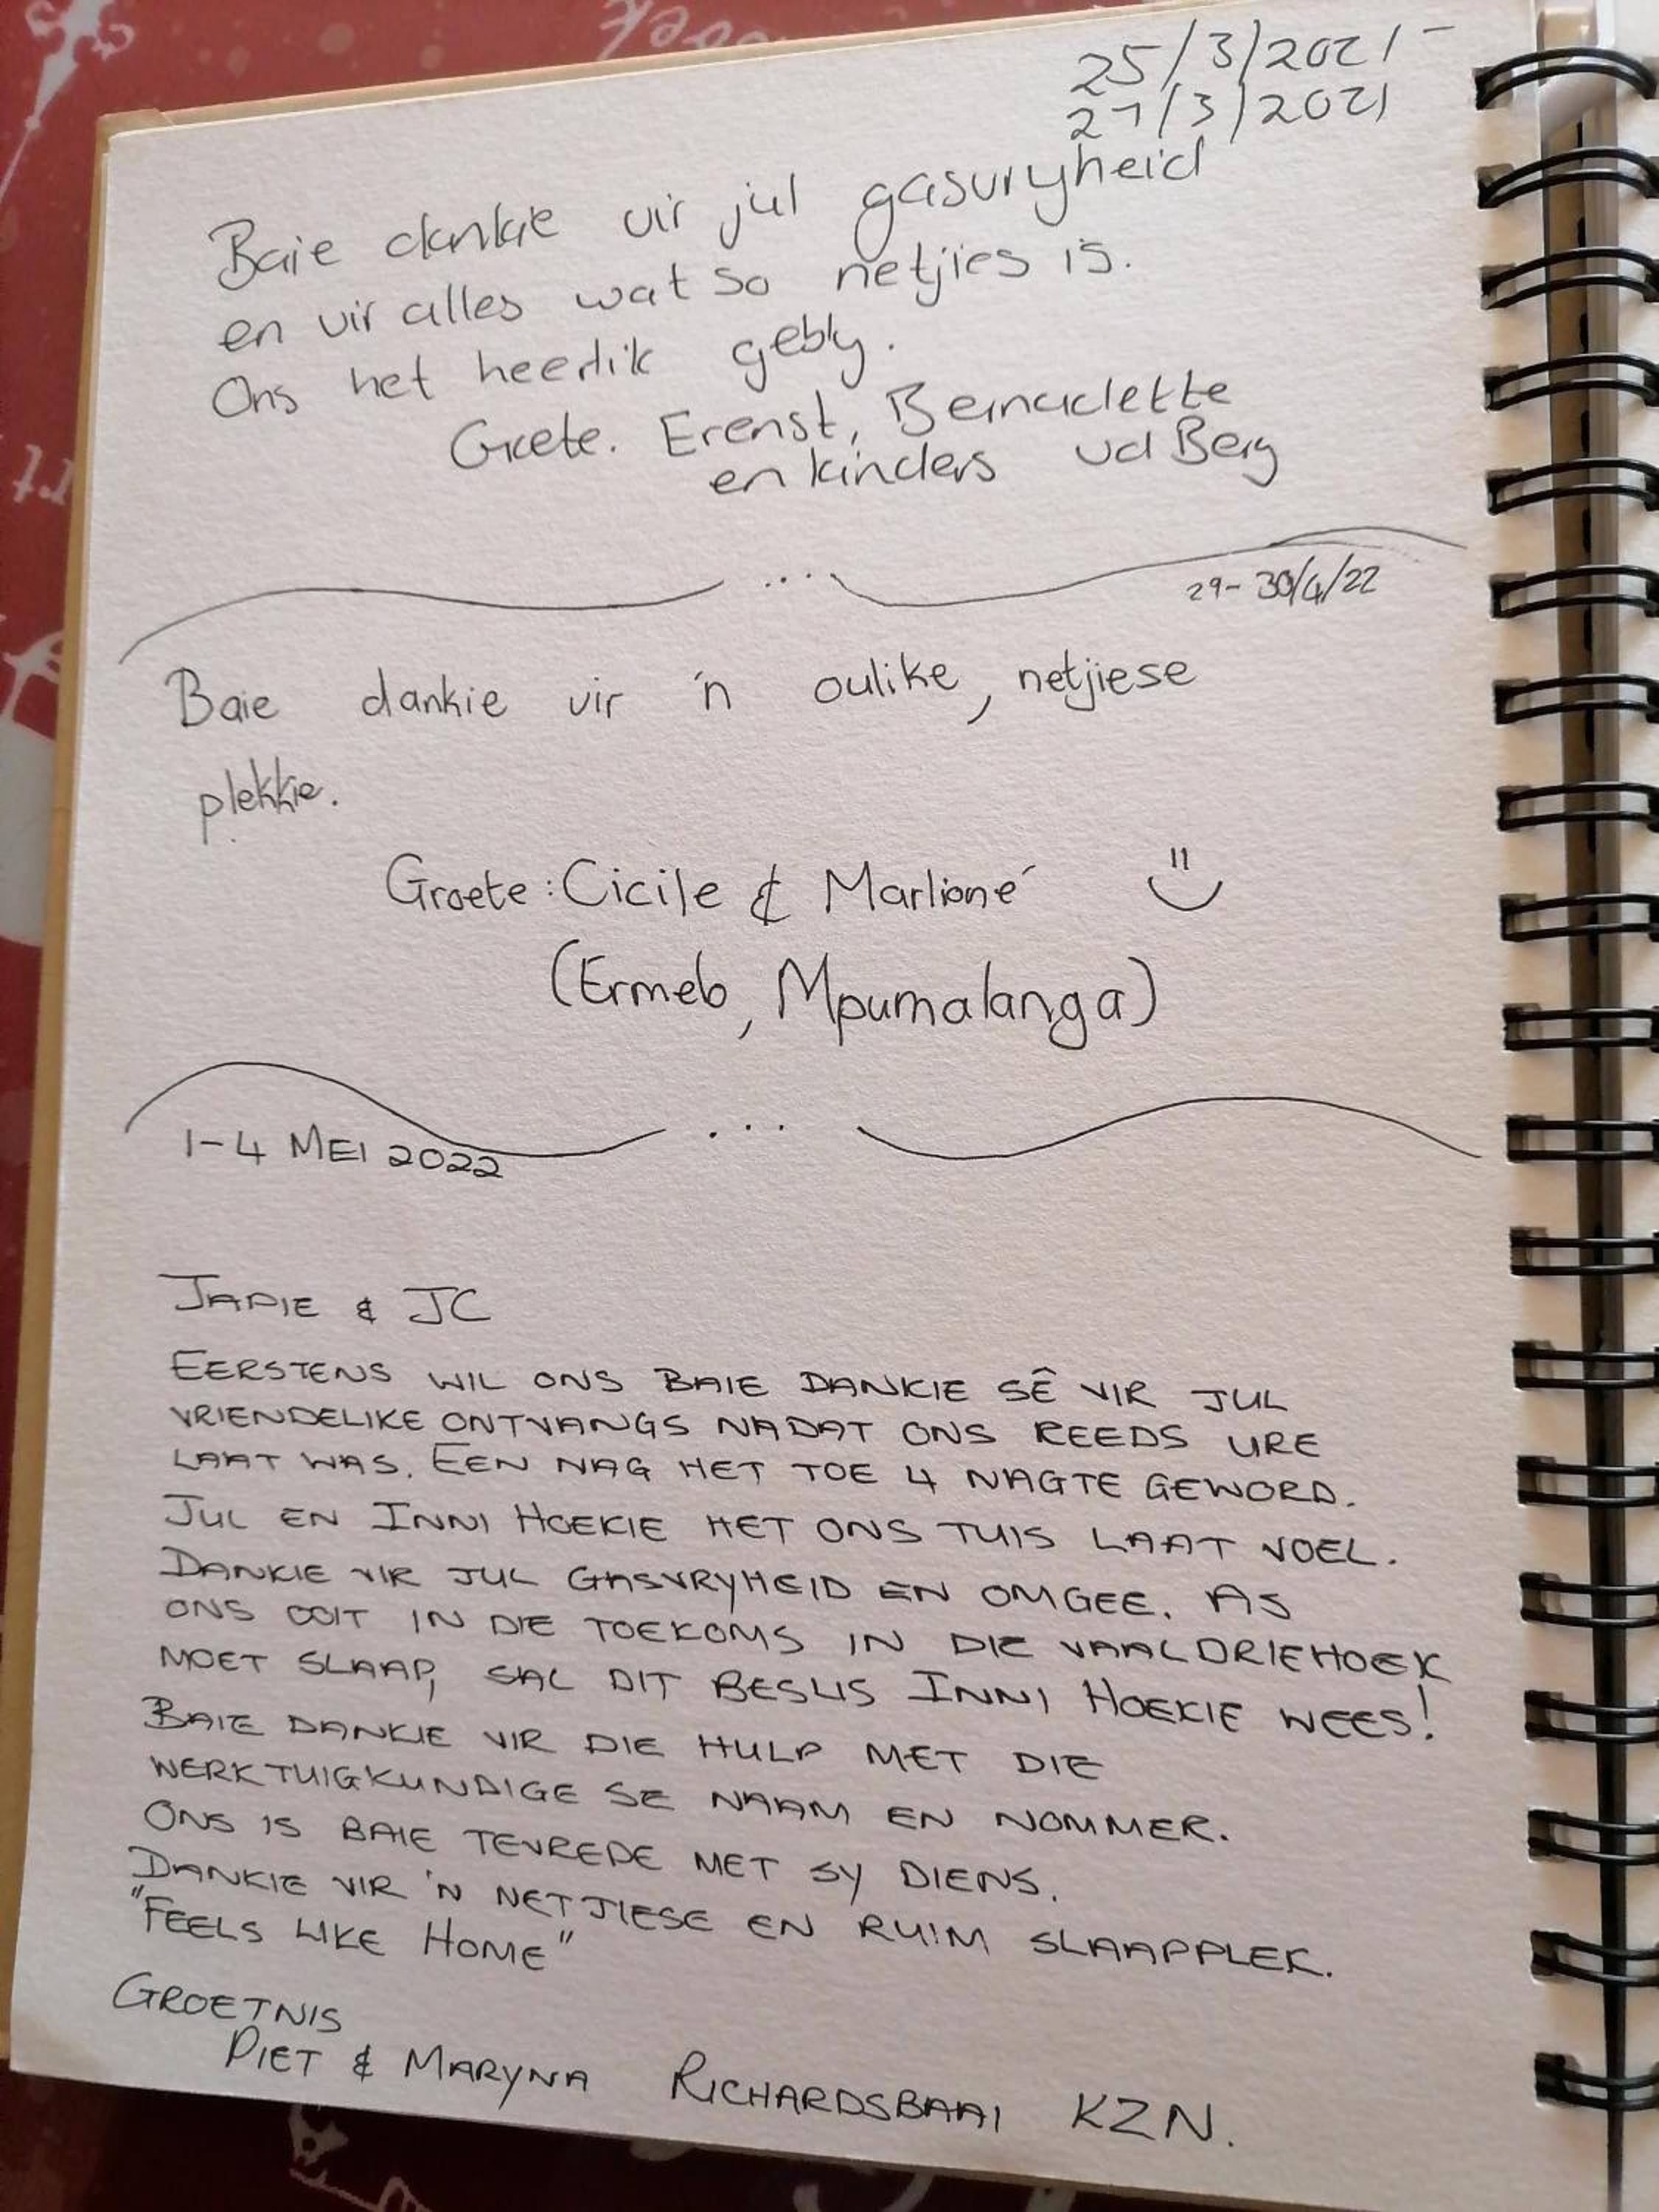 25/3/2021-
27/3/2021
Baie dankie vir jul gasvryheid
en vir alles wat so netjies is.
Ons het heerlik gebly.
Groete. Erenst, Bernadette
en kinders vd Berg
...
29-30/4/22
Baie dankie vir 'n oulike, netjiese
plekkie.
Groete: Cicile & Marlioné
(Ermelo, Mpumalanga)
...
1-4 MEI 2022
JAPIE & JC
EERSTENS WIL ONS BAIE DANKIE SÊ VIR JUL
VRIENDELIKE ONTVANGS NADAT ONS REEDS URE
LAAT WAS. EEN NAG HET TOE 4 NAGTE GEWORD.
JUL EN INNI HOEKIE HET ONS TUIS LAAT VOEL.
DANKIE VIR JUL GASVRYHEID EN OMGEE. AS
ONS OOIT IN DIE TOEKOMS IN DIE VAALDRIEHOEK
MOET SLAAP, SAL DIT BESLIS INNI HOEKIE WEES!
BAIE DANKIE VIR DIE HULP MET DIE
WERKTUIGKUNDIGE SE NAAM EN NOMMER.
ONS IS BAIE TEVREDE MET SY DIENS.
DANKIE VIR 'N NETJIESE EN RUIM SLAAPPLEK.
"FEELS LIKE HOME"
GROETNIS
PIET & MARYNA RICHARDSBAAI KZN.